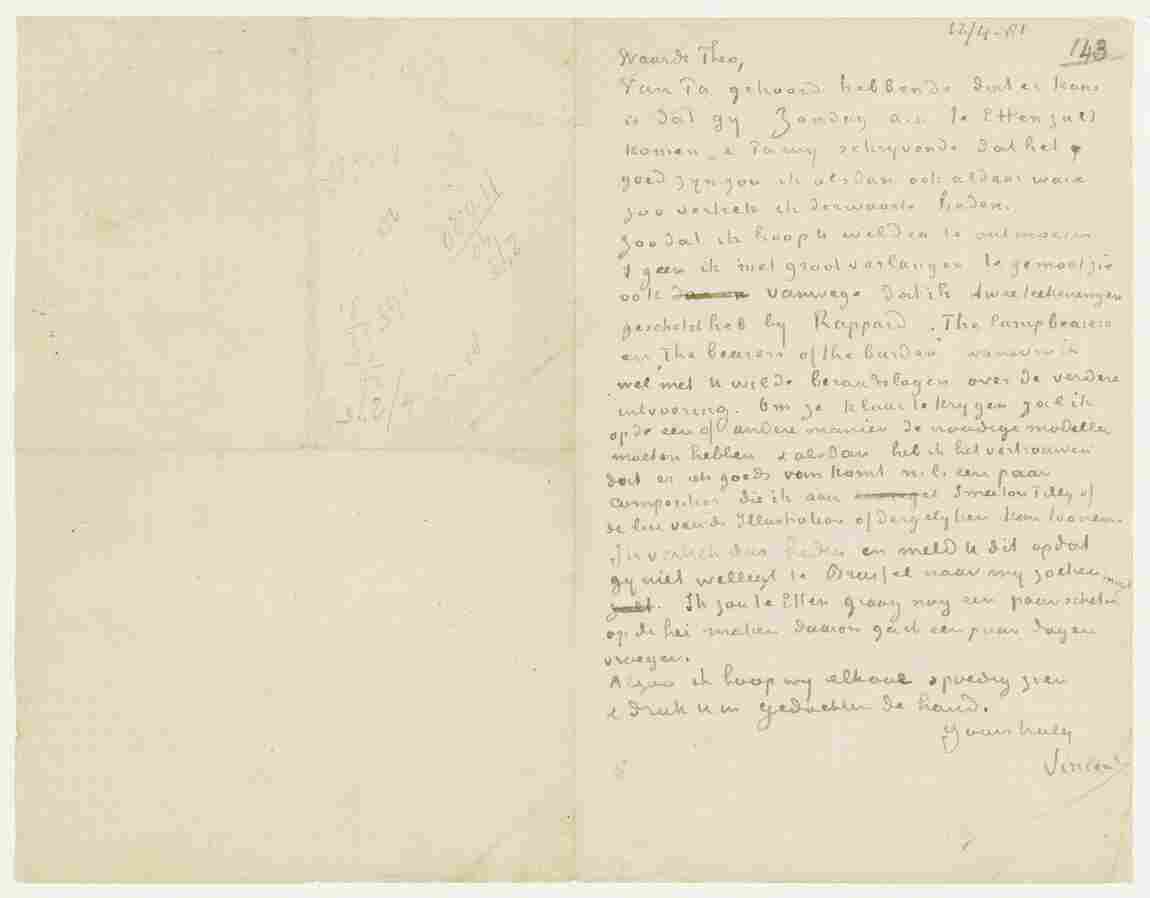 12/4-81
143
Waarde Theo,
Van Pa gehoord hebbende dat er kans
is dat gy Zondag a.s. te Etten zult
komen & Pa my schryvende dat het
goed zyn zou ik alsdan ook aldaar ware
zoo vertrek ik derwaarts heden.
Zoodat ik hoop U weldra te ontmoeten
't geen ik met groot verlangen te gemoet zie
ook vanwege dat ik twee teekeningen
geschetst heb by Rappard, The lampbearers
en "The bearers of the burden" waarvan ik
wel met U wilde beraadslagen over de verdere
uitvoering. Om ze klaar te krygen zal ik
op de een of andere manier de noodige modellen
moeten hebben & alsdan heb ik het vertrouwen
dat er iets goeds van komt n.l. een paar
composities die ik aan Smeeton Tilly of
de lui van de Illustration of dergelyken kan toonen.
Ik vertrek dus heden en meld U dit opdat
gy niet wellegt te Brussel naar my zoeken moet
. Ik zou te Etten graag nog een paar schetsen
op de hei maken daarom ga ik een paar dagen
vroeger.
Alzoo ik hoop wy elkaar spoedig zien
& druk U in gedachten de hand.
Yours truly
Vincent